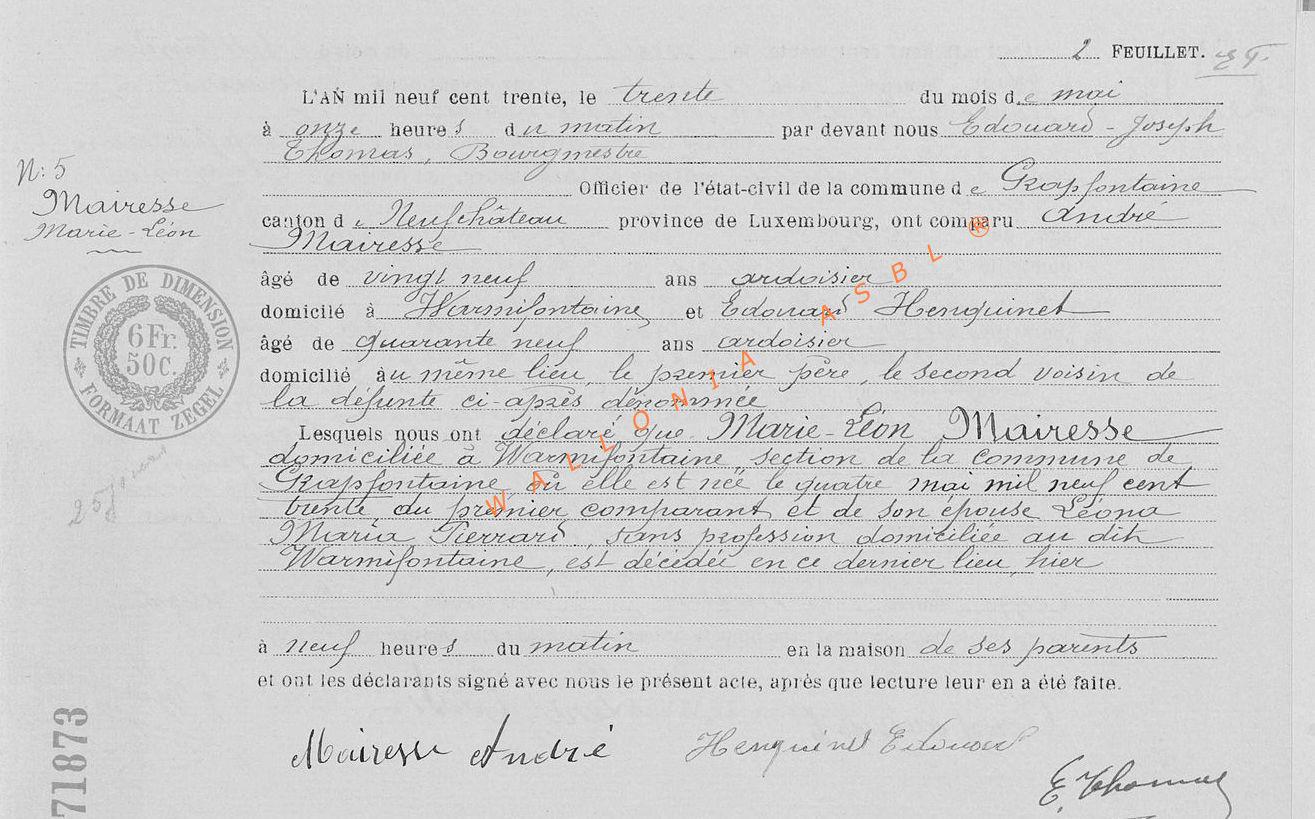 2 FEUILLET.
L'AN mil neuf cent trente, le trente du mois de mai
à onze heures du matin par devant nous Edouard-Joseph
Thomas, Bourgmestre
Officier de l'état-civil de la commune de Grapfontaine
canton de Neufchâteau province de Luxembourg, ont comparu André
Mairesse
âgé de vingt neuf ans ardoisier
domicilé à Warmifontaine et Edouard Henquinet
âgé de quarante neuf ans ardoisier
domicilié au même lieu, le premier père, le second voisin de
la défunte ci-après dénommée
Lesquels nous ont déclaré que Marie-Léon Mairesse
domiciliée à Warmifontaine section de la commune de
Grapfontaine où elle est née le quatre mai mil neuf cent
trente du premier comparant et de son épouse Léona
Maria Pierrard, sans profession domiciliée au dit
Warmifontaine, est décédée en ce dernier lieu, hier
à neuf heures du matin en la maison de ses parents
et ont les déclarants signé avec nous le présent acte, après que lecture leur en a été faite.
Mairesse André Henquinet Edouard
E. Thomas
N: 5
Mairesse
Marie-Léon
TIMBRE DE DIMENSION
6 Fr.
50c.
FORMAAT ZEGEL
71873
WALLONIA ASBL ®